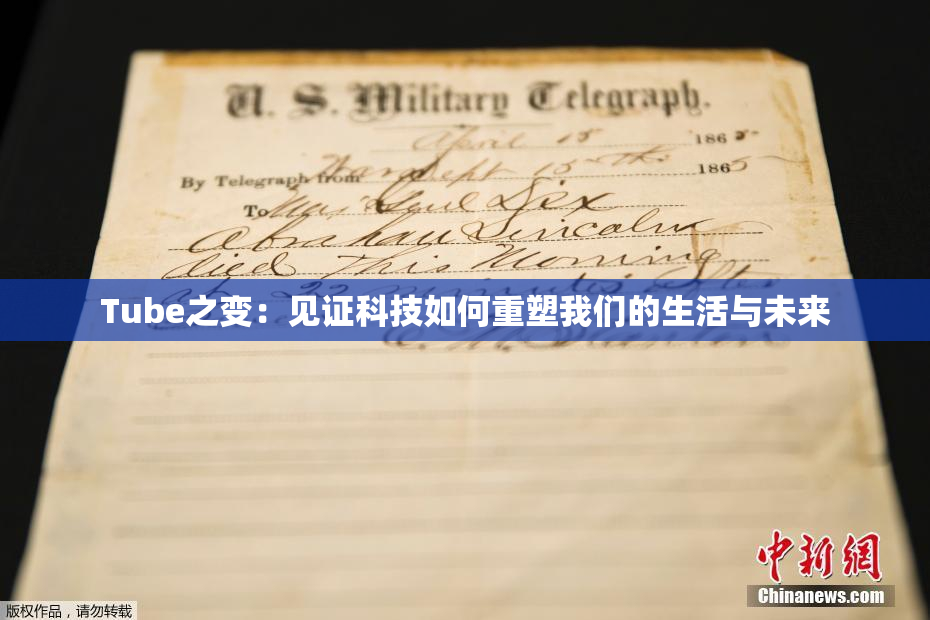 U. S. Military Telegraph.
April 15 1865
By Telegraph from War Dept 15th 1865
To Maj Genl Dix
Abraham Lincoln
died This Morning
at 22 minutes after
Tube之变：见证科技如何重塑我们的生活与未来
E. M. Stanton
中新網
Chinanews.com
版权作品，请勿转载